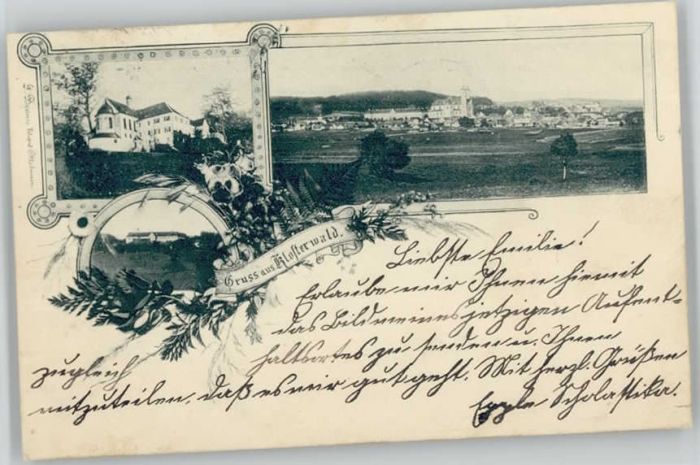 Gruss aus Klosterwald.
Liebste Emilie!
Erlaube mir Ihnen hiemit
das Bild meines jetzigen Aufent-
haltsortes zu senden u. Ihnen
zugleich
mitzuteilen, daß es mir gut geht. Mit herzl. Grüßen
Scholastika.